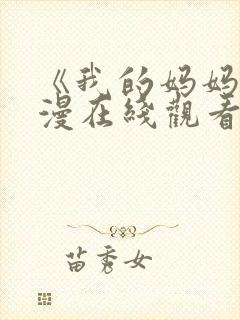 《我的妈妈
漫在线觀看
苗秀女